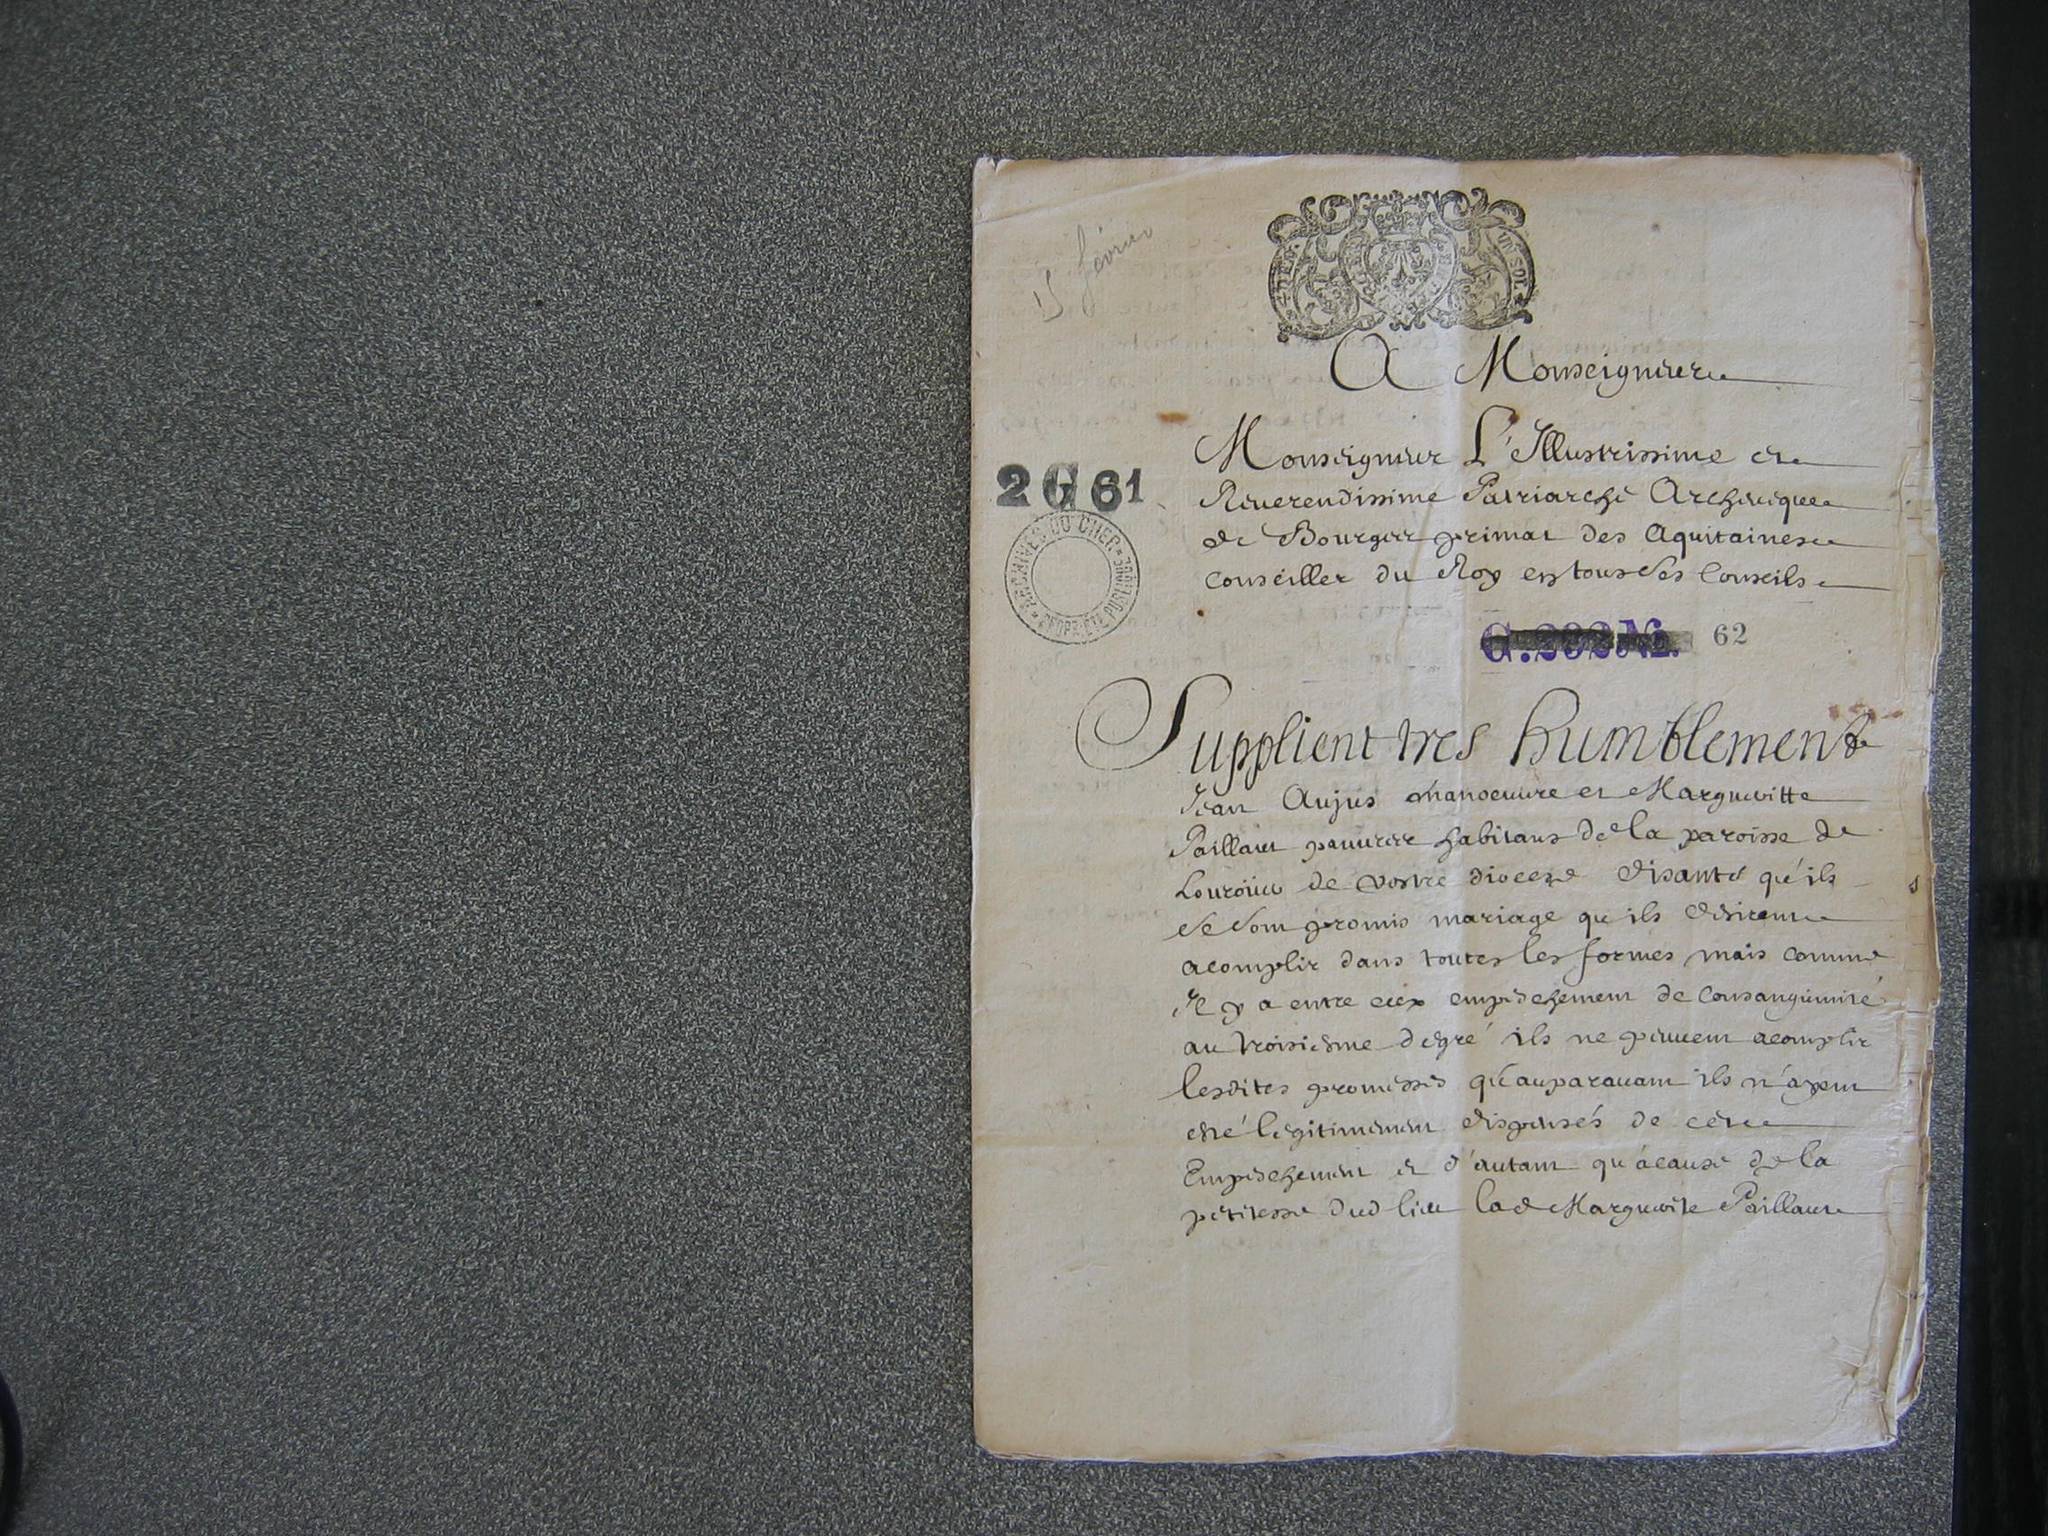 15 février
A Monseigneur
Monseigneur L'Illustrissime et
Reverendissime Patriarche Archeuesque
de Bourges primat des Aquitaines
Conseiller du Roy en tous ses Conseils
2 G 61
ARCHIVES DU CHER
PROPRIÉTÉ PUBLIQUE
G. 292 62
Supplient tres humblement
Jean Aujus manoeuure et Margueritte
Paillaut pauures habitans de la paroisse de
de vostre diocese disants qu'ils
se sont promis mariage qu'ils desirent
acomplir dans toutes les formes mais comme
Il y a entre eux empeschement de Consanguinité
au troisiesme degré ils ne peuuent acomplir
lesdites promesses qu'auparauant ils n'ayent
esté legitimement dispensés de cet
Empeschement et d'autant qu'acause de la
petitesse dud lieu lad Marguerite Paillaut